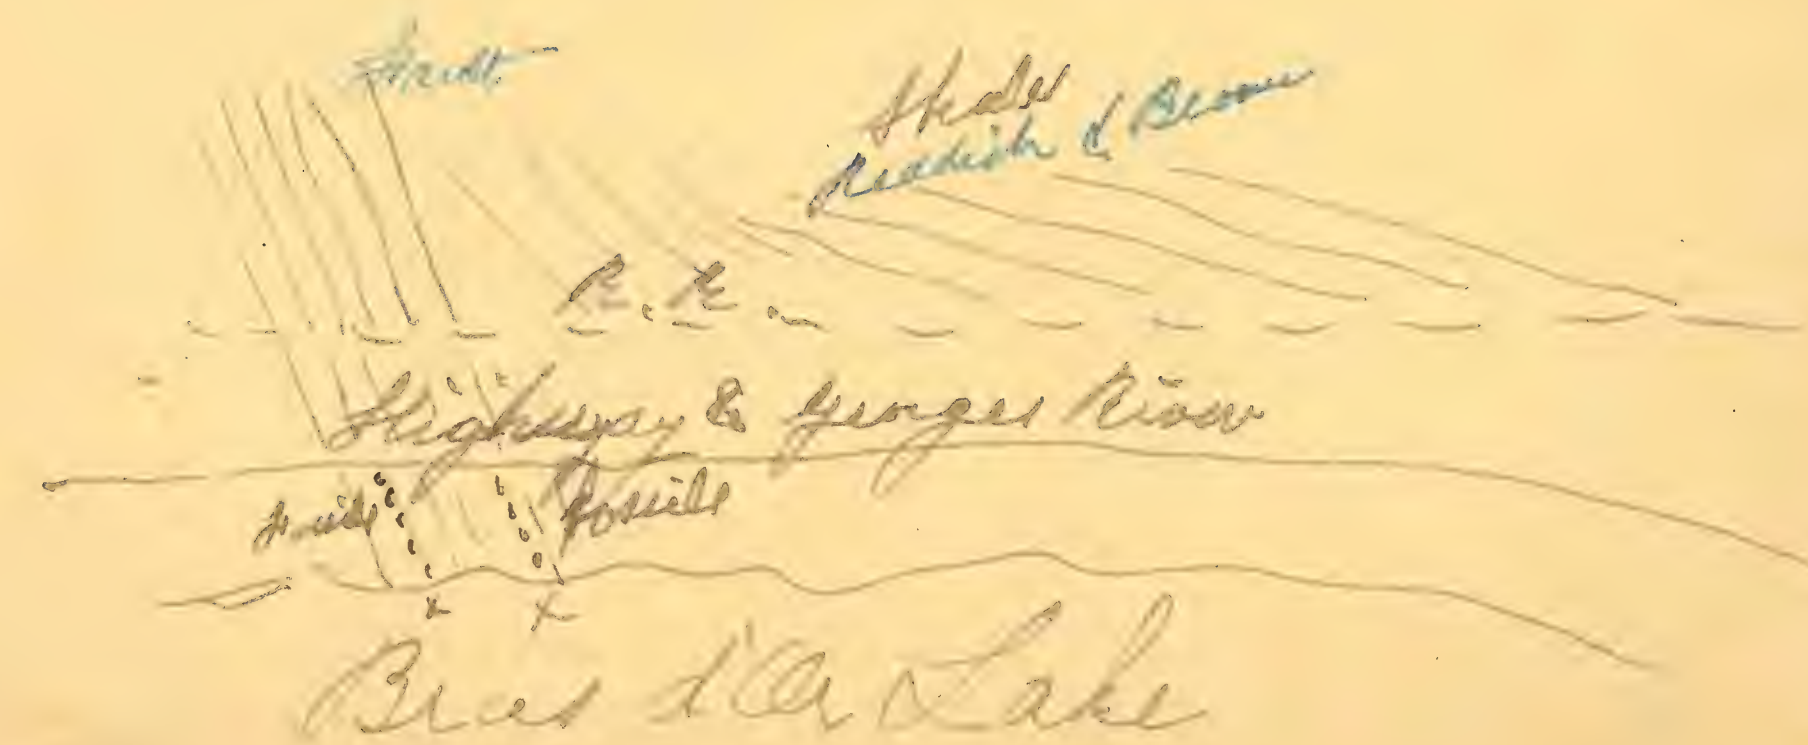 Shales
Readish & Brown
R. R.
Highway & Georges River
Fossils
Bras d'Or Lake